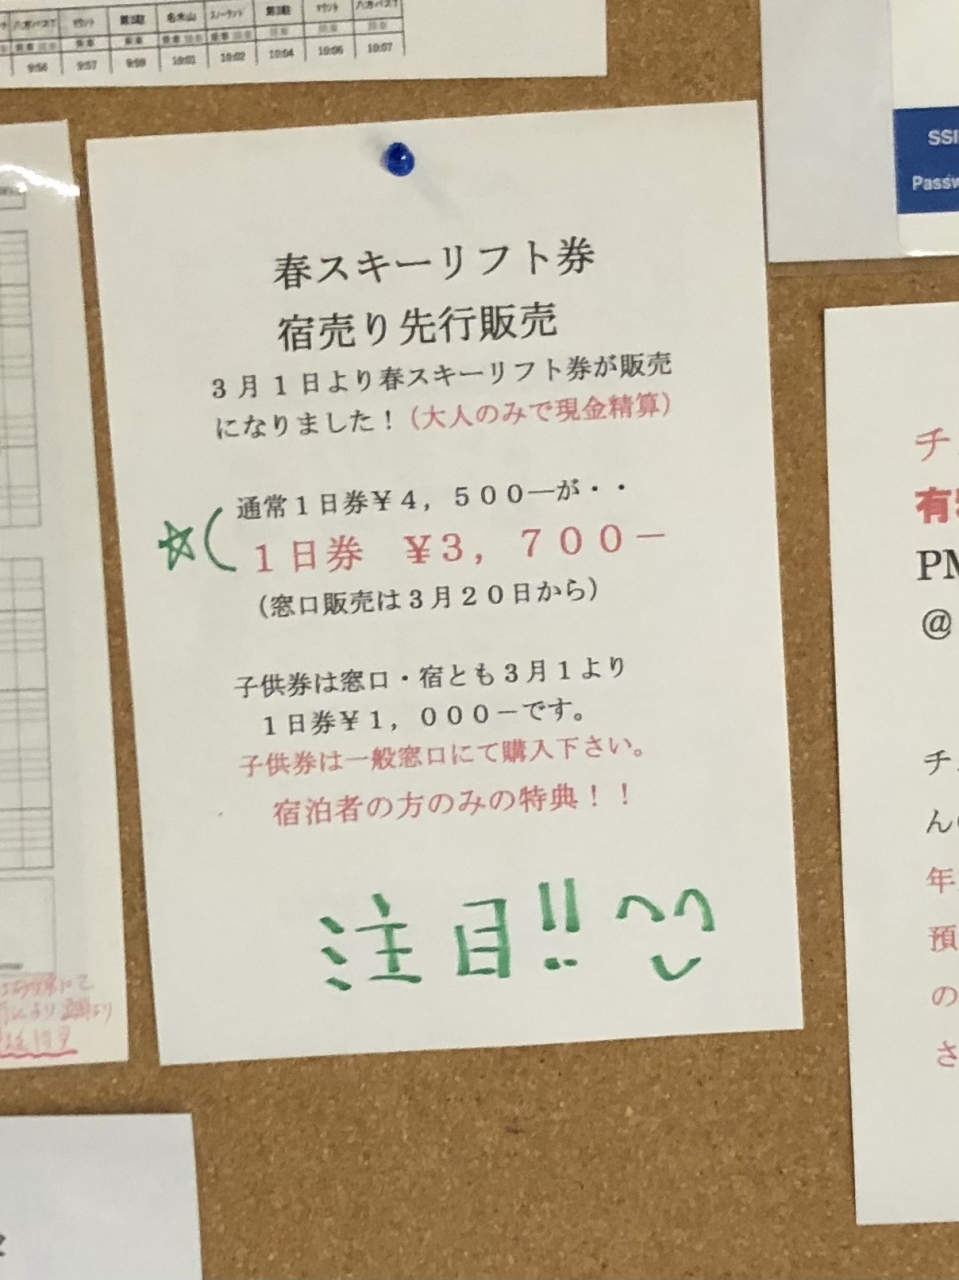 八方バスT
9:56 9:57 9:59 10:01 10:02 10:04 10:06 10:07
SSI
Passw
春スキーリフト券
宿売り先行販売
3月1日より春スキーリフト券が販売
になりました！（大人のみで現金精算）
通常1日券¥4，500―が・・
☆( 1日券 ¥3，700－
（窓口販売は3月20日から）
子供券は窓口・宿とも3月1より
1日券¥1，000－です。
子供券は一般窓口にて購入下さい。
宿泊者の方のみの特典！！
注目!!
チ
有
PM
@
チ
ん
年
預
の
さ